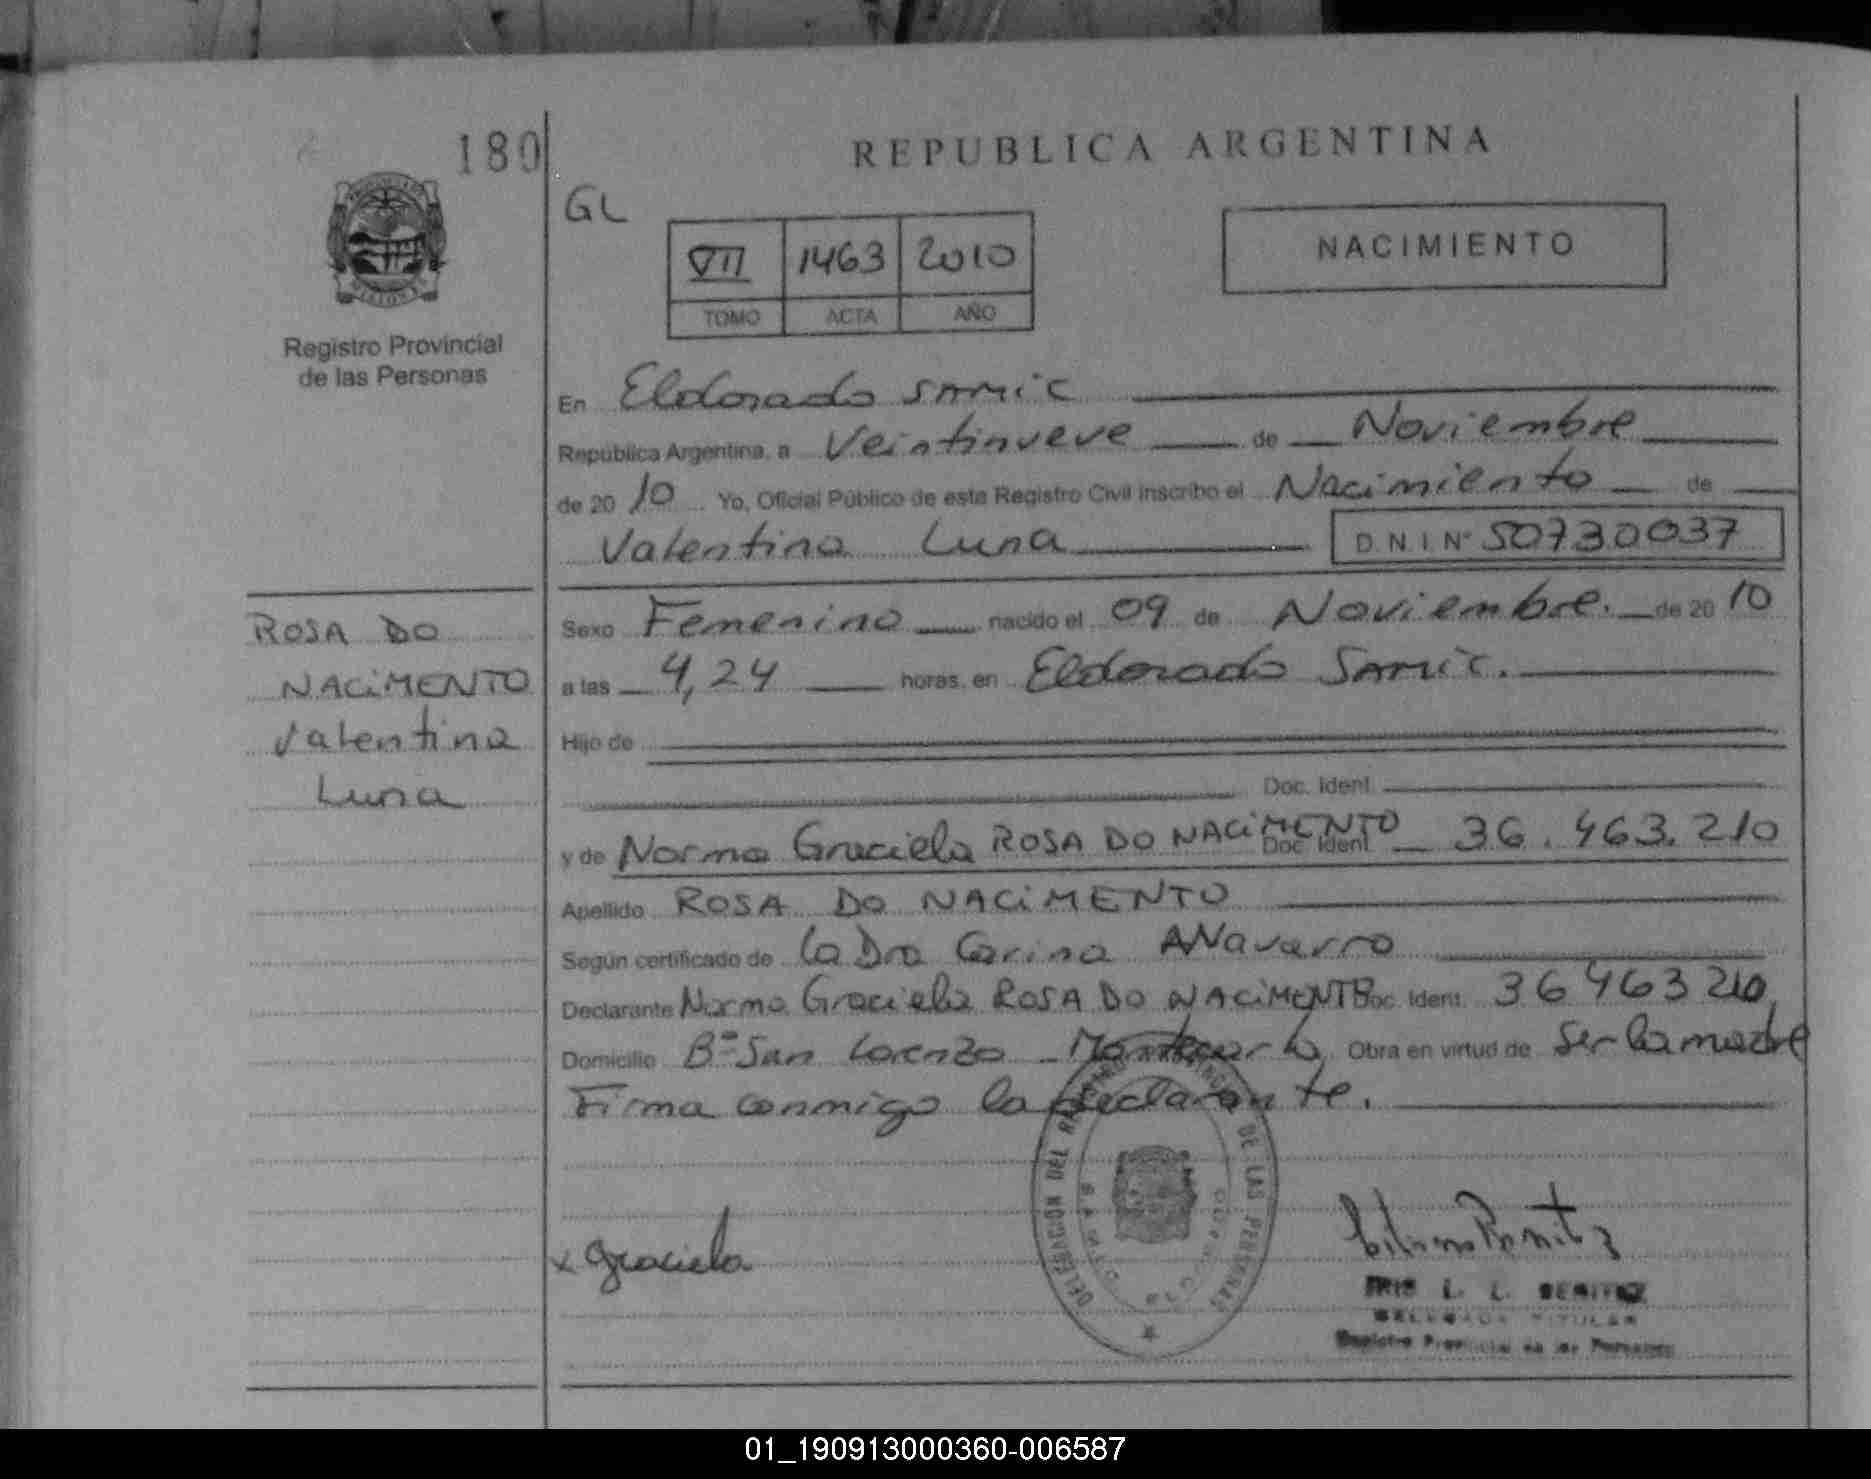 180
REPUBLICA ARGENTINA
GL
VII 1463 2010
TOMO ACTA AÑO
NACIMIENTO
PROVINCIA DE MISIONES
Registro Provincial
de las Personas
En Eldorado SAMIC
República Argentina, a Veintinueve de Noviembre
de 20 10 Yo, Oficial Público de este Registro Civil inscribo el Nacimiento de
Valentina Luna D.N.I. Nº 50730037
ROSA DO
NACIMENTO
Valentina
Luna
Sexo Femenino nacido el 09 de Noviembre. de 20 10
a las 4,24 horas, en Eldorado SAMIC.
Hijo de
Doc. Ident.
y de Norma Graciela ROSA DO NACIMENTO Doc. Ident. 36.463.210
Apellido ROSA DO NACIMENTO
Según certificado de la Dra Carina A Navarro
Declarante Norma Graciela ROSA DO NACIMENTO Doc. Ident. 36463210
Domicilio Bº San Lorenzo - Montecarlo Obra en virtud de Ser la madre
Firma conmigo la declarante.
DELEGACION DEL REGISTRO PROVINCIAL DE LAS PERSONAS
SAMIC
ELDORADO
x Graciela
IRIS L. L. BENITEZ
DELEGADA TITULAR
Registro Provincial de las Personas
01_190913000360-006587